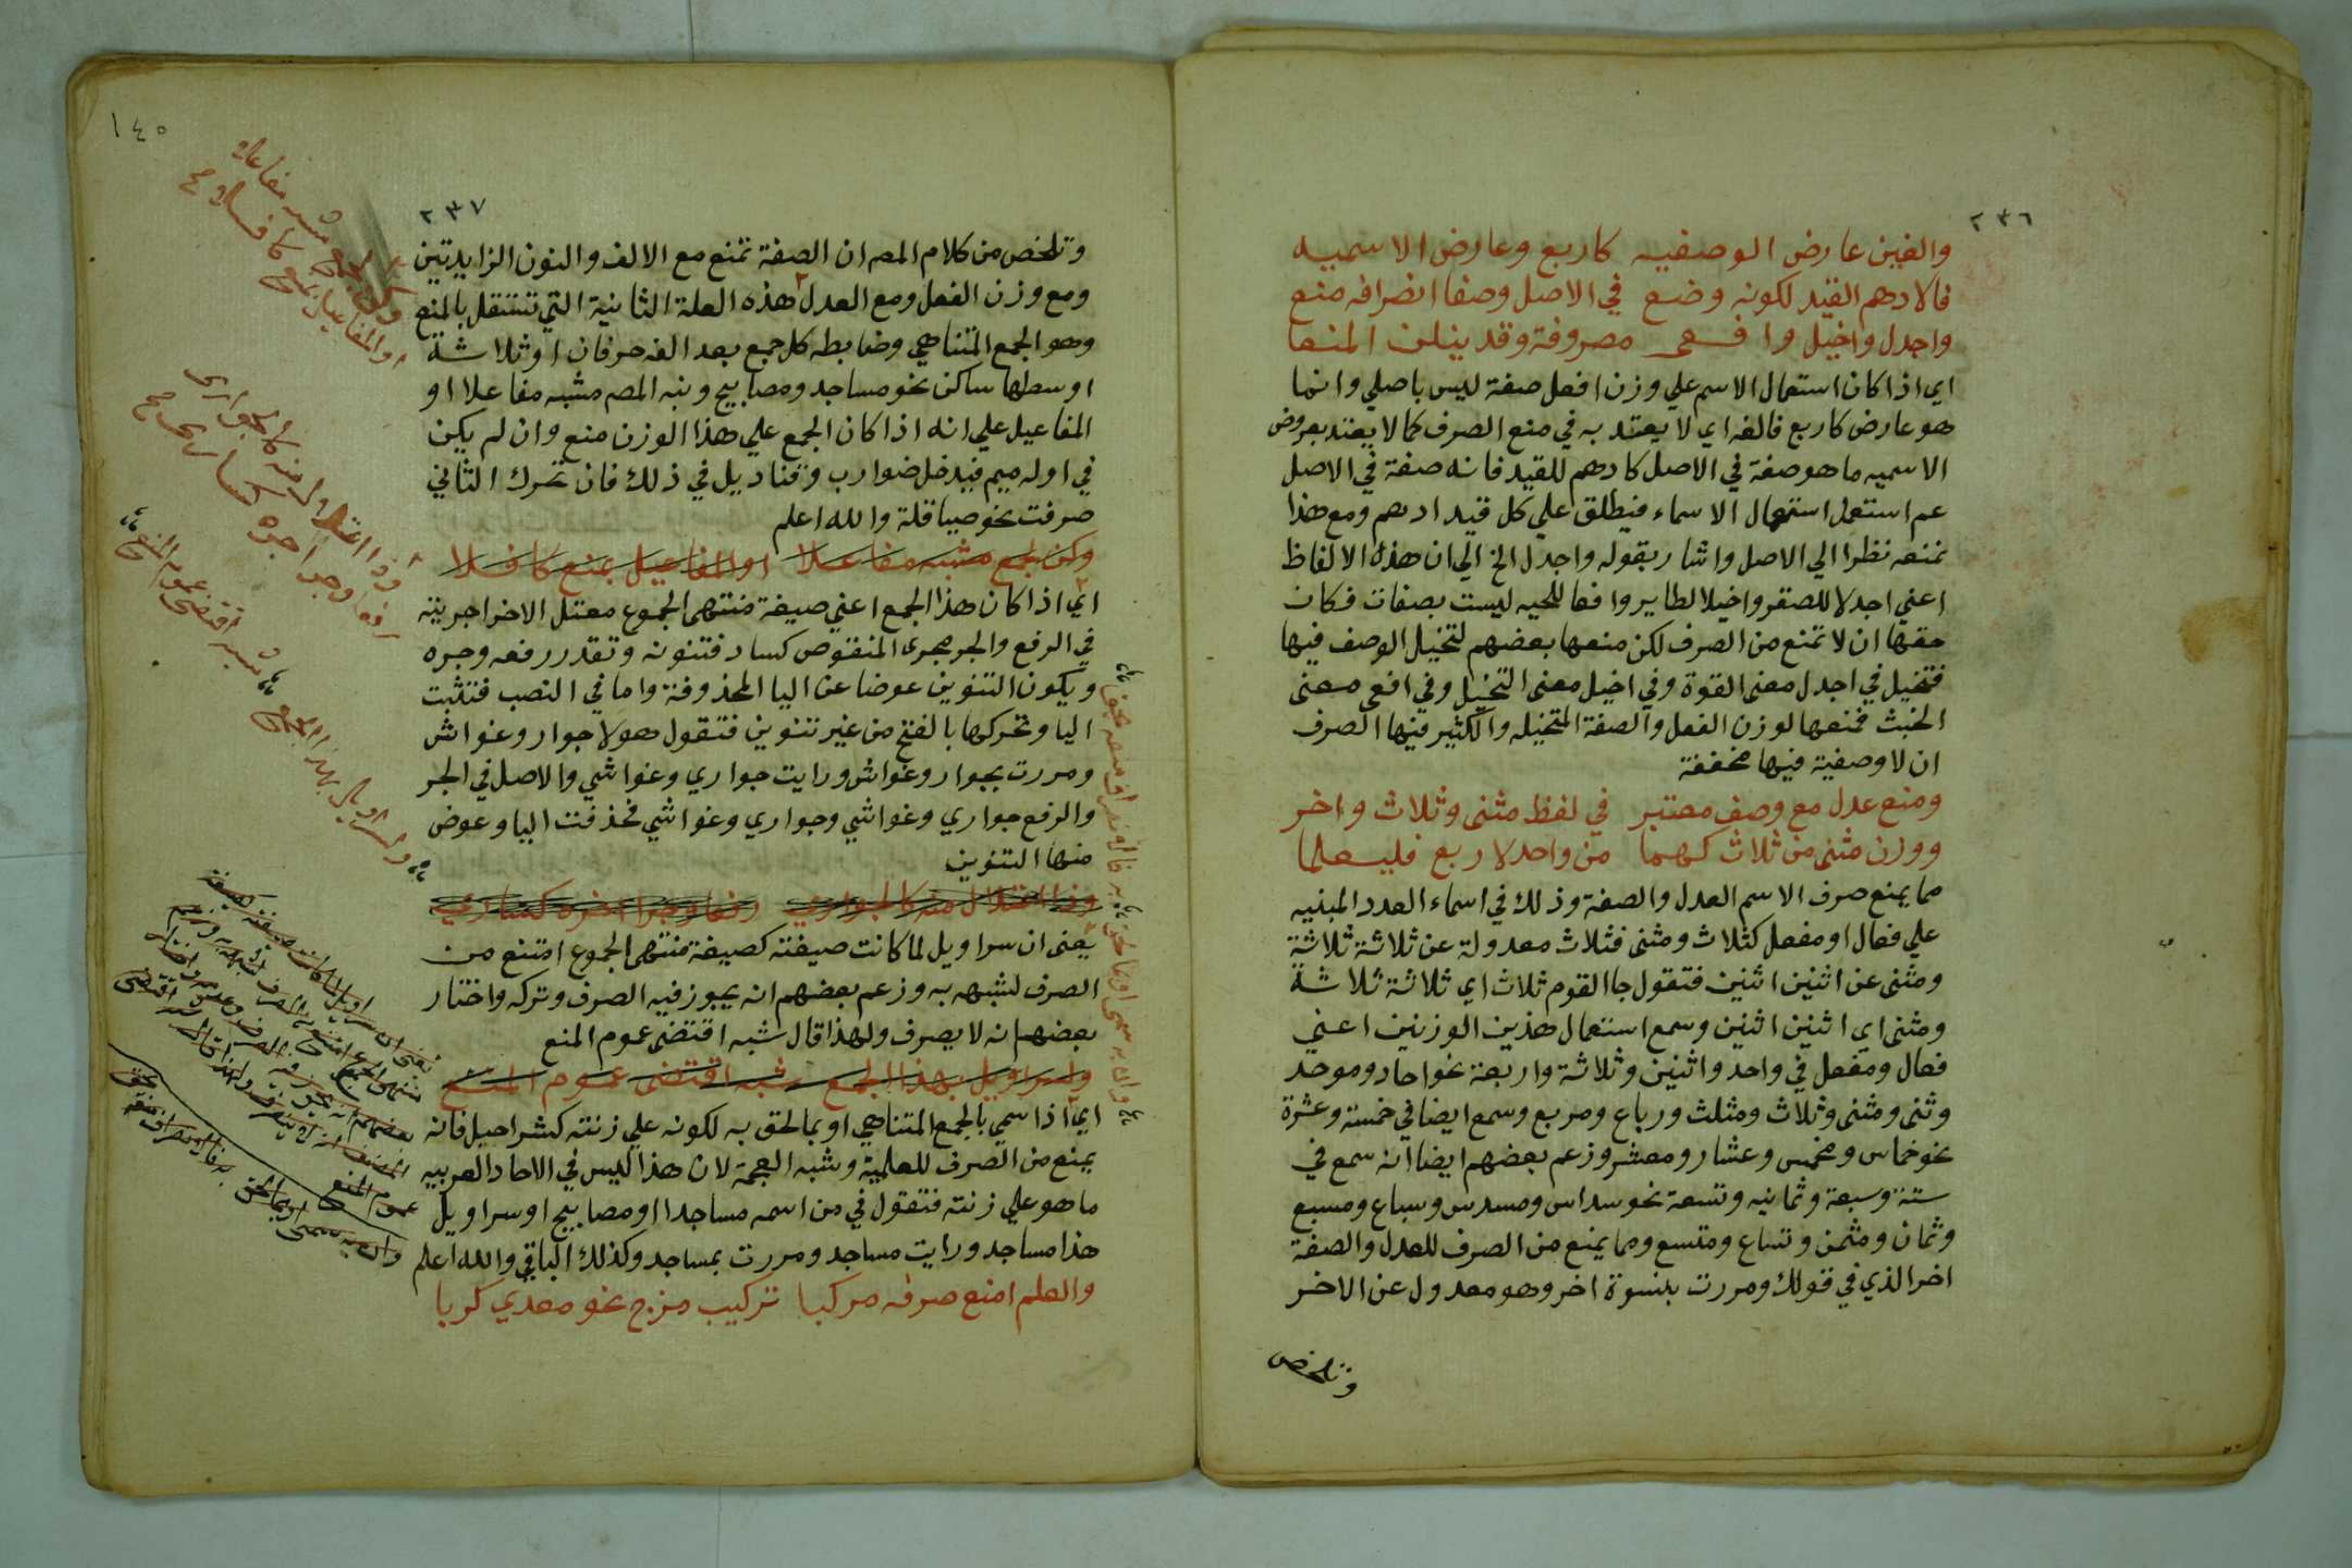 ٢٣٦
والغين عارض الوصفيه كاربع وعارض الاسميه
فالادهم القيد لكونه وضع في الاصل وصفا انصرافه منع
واجدل واخيل وافعى مصروفة وقد ينلن المنعا
اي اذا كان استعمال الاسم علي وزن افعل صفة ليس باصلي وانما
هو عارض كاربع فالغه اي لا يعتد به في منع الصرف كما لا يعتد بعروض
الاسميه ما هو صفة في الاصل كادهم للقيد فانه صفة في الاصل
عم استعمل استعمال الاسماء فيطلق علي كل قيد ادهم ومع هذا
تمنعه نظرا الي الاصل واشار بقوله واجدل الخ الي ان هذه الالفاظ
اعني اجدلا للصقر واخيلا لطاير وافعا للحيه ليست بصفات فكان
حقها ان لا تمنع من الصرف لكن منعها بعضهم لتخيل الوصف فيها
فتخيل في اجدل معنى القوة وفي اخيل معنى التخيل وفي افعى معنى
الخبث فمنعها لوزن الفعل والصفة المتخيله والكثير فيها الصرف
ان لا وصفية فيها محققة
ومنع عدل مع وصف معتبر في لفظ مثنى وثلاث واخر
ووزن مثنى من ثلاث كهما من واحد لاربع فليعلما
مما يمنع صرف الاسم العدل والصفة وذلك في اسماء العدد المبنيه
علي فعال او مفعل كثلاث ومثنى فثلاث معدولة عن ثلاثة ثلاثة
ومثنى عن اثنين اثنين فتقول جا القوم ثلاث اي ثلاثة ثلاثة
ومثنى اي اثنين اثنين وسمع استعمال هذين الوزنين اعني
فعال ومفعل في واحد واثنين وثلاثة واربعة نحو احاد وموحد
وثنى ومثنى وثلاث ومثلث ورباع ومربع وسمع ايضا في خمسة وعشرة
نحو خماس ومخمس وعشار ومعشر وزعم بعضهم ايضا انه سمع في
ستة وسبعة وثمانيه وتسعة نحو سداس ومسدس وسباع ومسبع
وثمان ومثمن وتساع ومتسع ومما يمنع من الصرف للعدل والصفة
اخر الذي في قولك ومررت بنسوة اخر وهو معدول عن الاخر
وتلخص
١٤٥
٢٣٧
وتلخص من كلام المص ان الصفة تمنع مع الالف والنون الزايدتين
ومع وزن الفعل ومع العدل هذه العلة الثانية التي تستقل بالمنع
وهو الجمع المتناهي وضابطه كل جمع بعد الفه حرفان او ثلاثة
اوسطها ساكن نحو مساجد ومصابيح ونبه المصم مشبه مفاعلا او
المفاعيل علي انه اذا كان الجمع علي هذا الوزن منع وان لم يكن
في اوله ميم فيدخل ضوارب وقناديل في ذلك فان تحرك الثاني
صرفت نحو صياقلة والله اعلم
وكن لجمع مشبه مفاعلا او المفاعيل بمنع كافلا
اي اذا كان هذا الجمع اعني صيغة منتهى الجموع معتل الاخر اجريته
في الرفع والجر مجرى المنقوص كساد فتنونه وتقدر رفعه وجره
ويكون التنوين عوضا عن اليا المحذوفة واما في النصب فتثبت
اليا وتحركها بالفتح من غير تنوين فتقول هولا جوار وغواش
ومررت بجوار وغواش ورايت جواري وغواشي والاصل في الجر
والرفع جواري وغواشي وجواري وغواشي فحذفت اليا وعوض
منها التنوين
وذا اعتلال منه كالجواري رفعا وجرا اجره كساري
يعنى ان سراويل لما كانت صيغته كصيغة منتهى الجموع امتنع من
الصرف لشبهه به وزعم بعضهم انه يجوز فيه الصرف وتركه واختار
بعضهم انه لا يصرف ولهذا قال شبه اقتضى عموم المنع
ولسراويل بهذا الجمع شبه اقتضى عموم المنع
اي اذا سمي بالجمع المتناهي او بما لحق به لكونه علي زنته كشراحيل فانه
يمنع من الصرف للعلمية وشبه العجمة لان هذا ليس في الاحاد العربيه
ما هو علي زنته فتقول في من اسمه مساجدا او مصابيح او سراويل
هذا مساجد ورايت مساجد ومررت بمساجد وكذلك الباقي والله اعلم
والعلم امنع صرفه مركبا تركيب مزج نحو معدي كربا
او المفاعيل بمنع كافلا صح
وذا اعتلال منه كالجواري
رفعا وجرا اجره كساري صح
ولسراويل بهذا الجمع شبه اقتضى عموم المنع